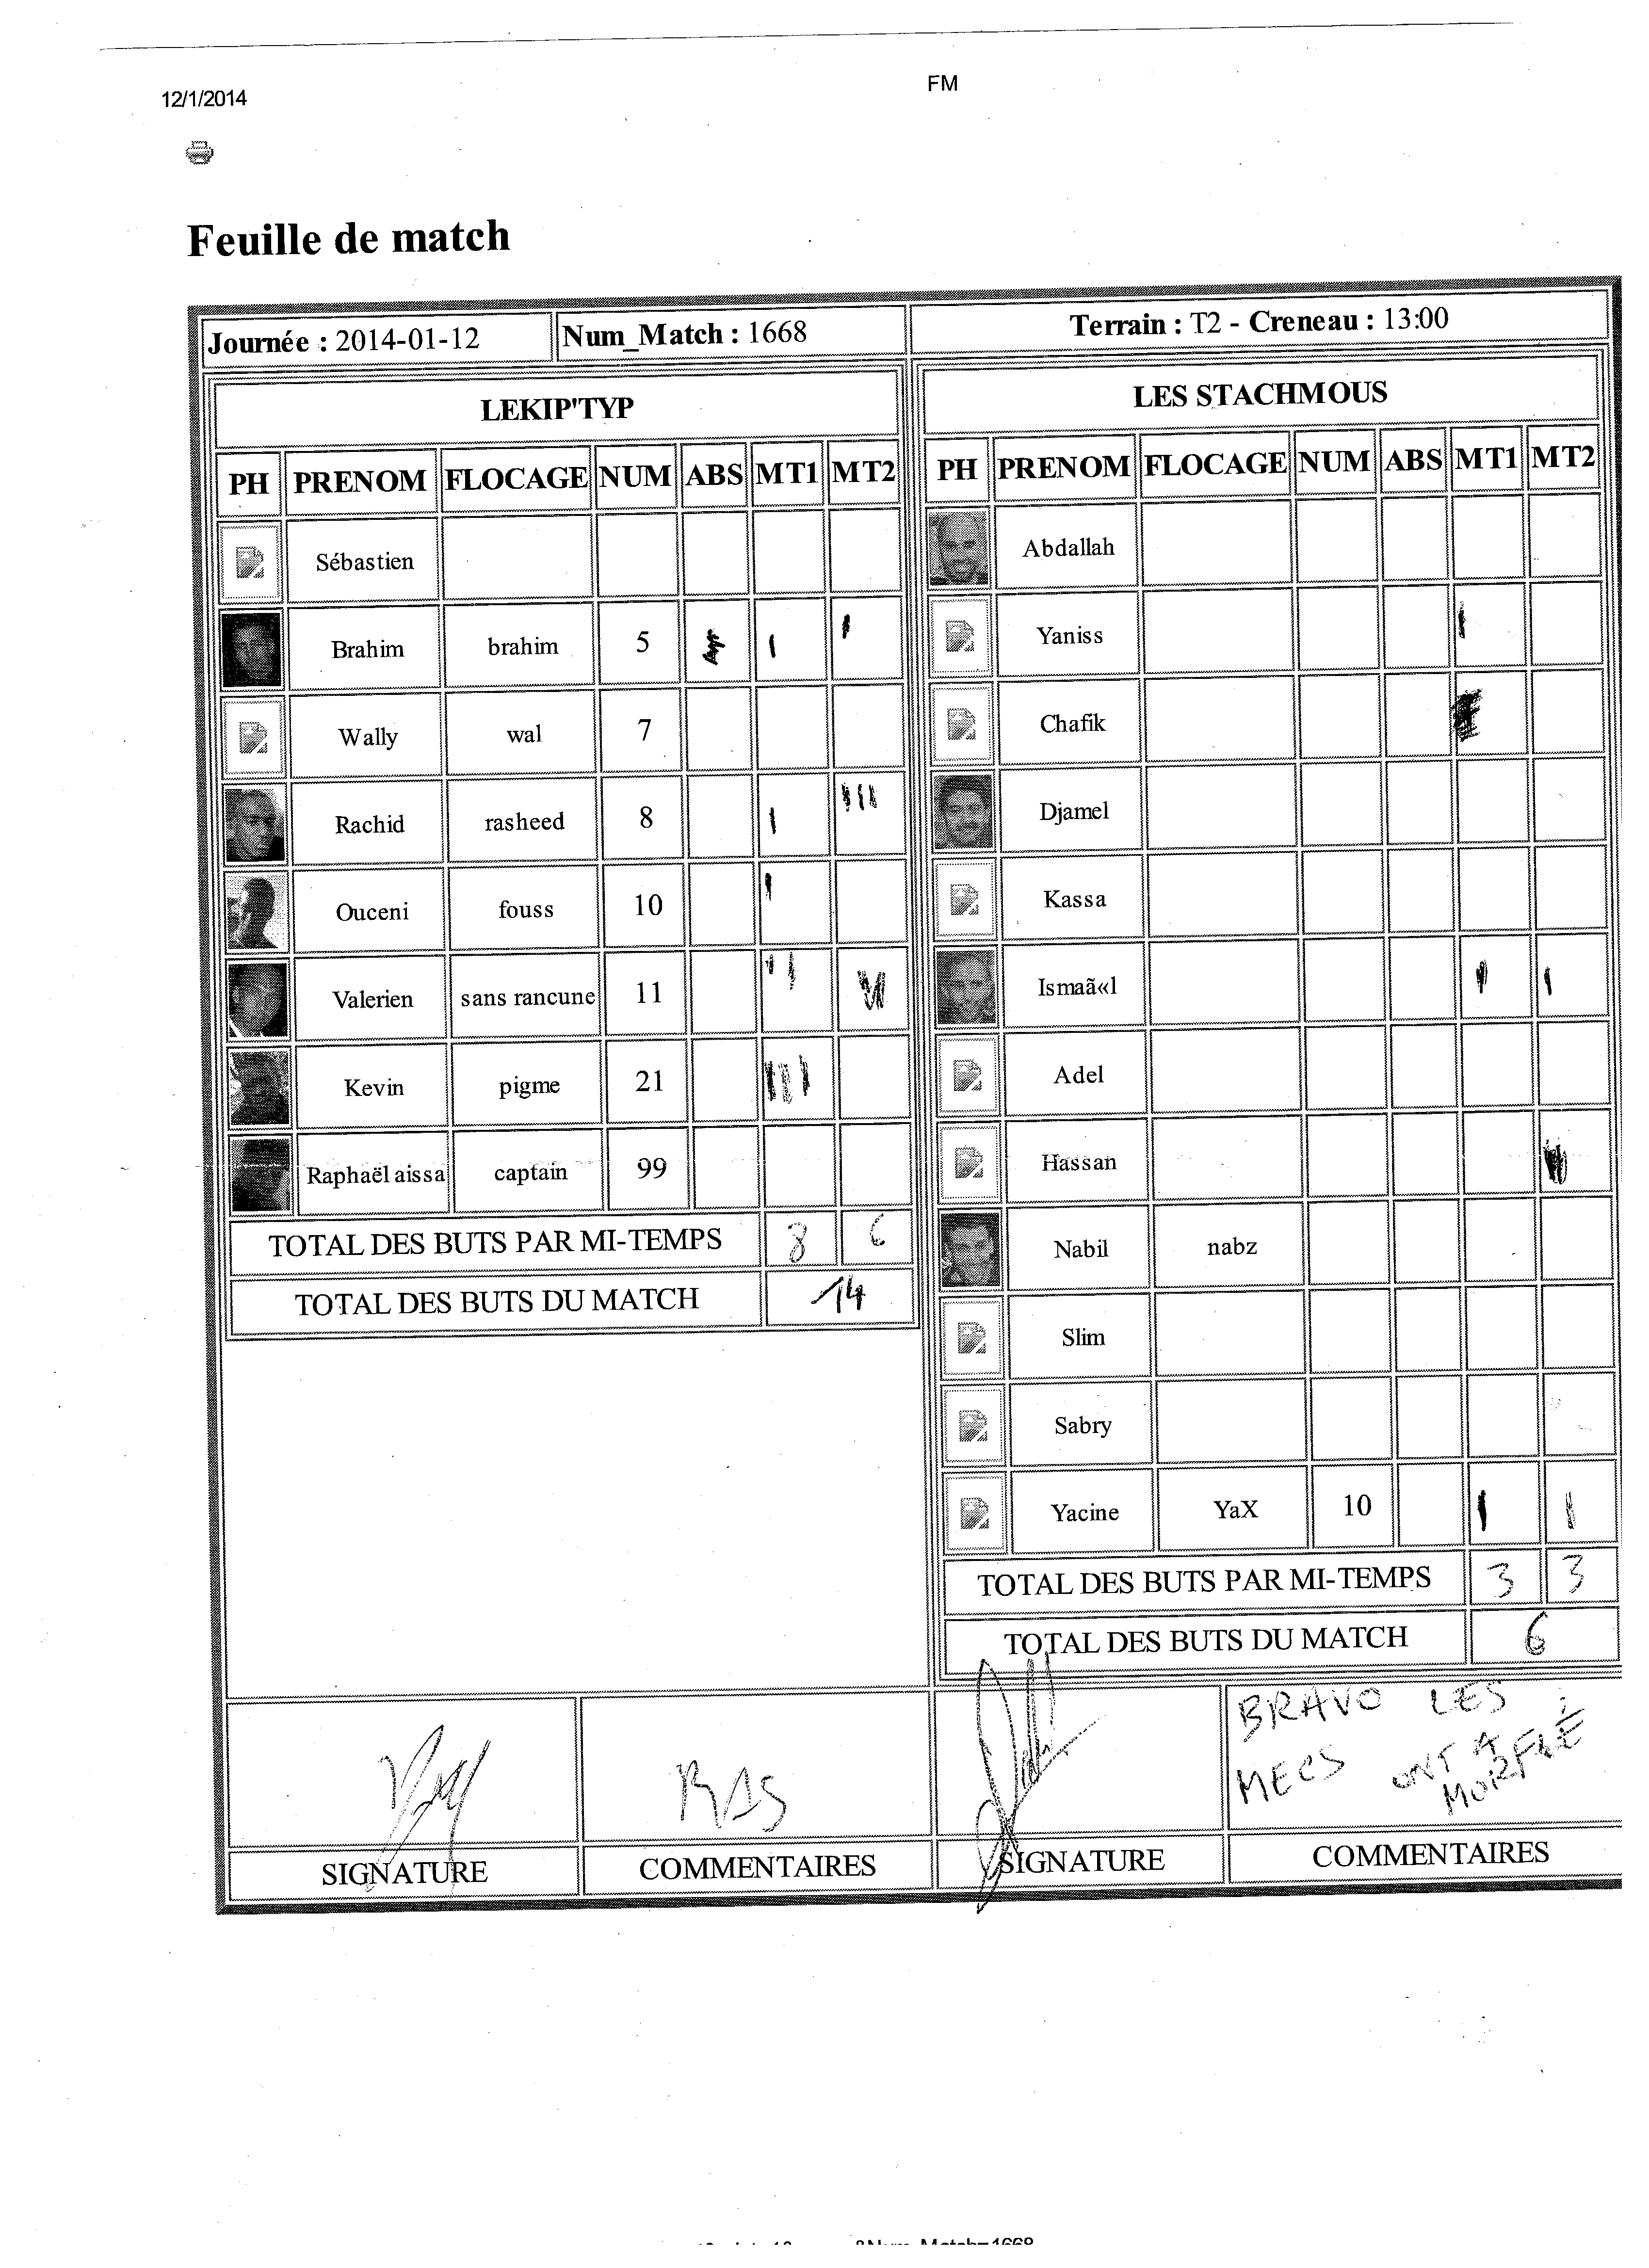 12/1/2014
FM
Feuille de match
Journée : 2014-01-12
Num_Match : 1668
Terrain : T2 - Creneau : 13:00
LEKIP'TYP
PH PRENOM FLOCAGE NUM ABS MT1 MT2
Sébastien
Brahim brahim 5
Wally wal 7
Rachid rasheed 8
Ouceni fouss 10
Valerien sans rancune 11
Kevin pigme 21
Raphaël aissa captain 99
TOTAL DES BUTS PAR MI-TEMPS 8 6
TOTAL DES BUTS DU MATCH 14
LES STACHMOUS
PH PRENOM FLOCAGE NUM ABS MT1 MT2
Abdallah
Yaniss
Chafik
Djamel
Kassa
Ismaã«l
Adel
Hassan
Nabil nabz
Slim
Sabry
Yacine YaX 10
TOTAL DES BUTS PAR MI-TEMPS 3 3
TOTAL DES BUTS DU MATCH 6
RAS
BRAVO LES
MECS ONT A
MORFLÉ
SIGNATURE COMMENTAIRES SIGNATURE COMMENTAIRES